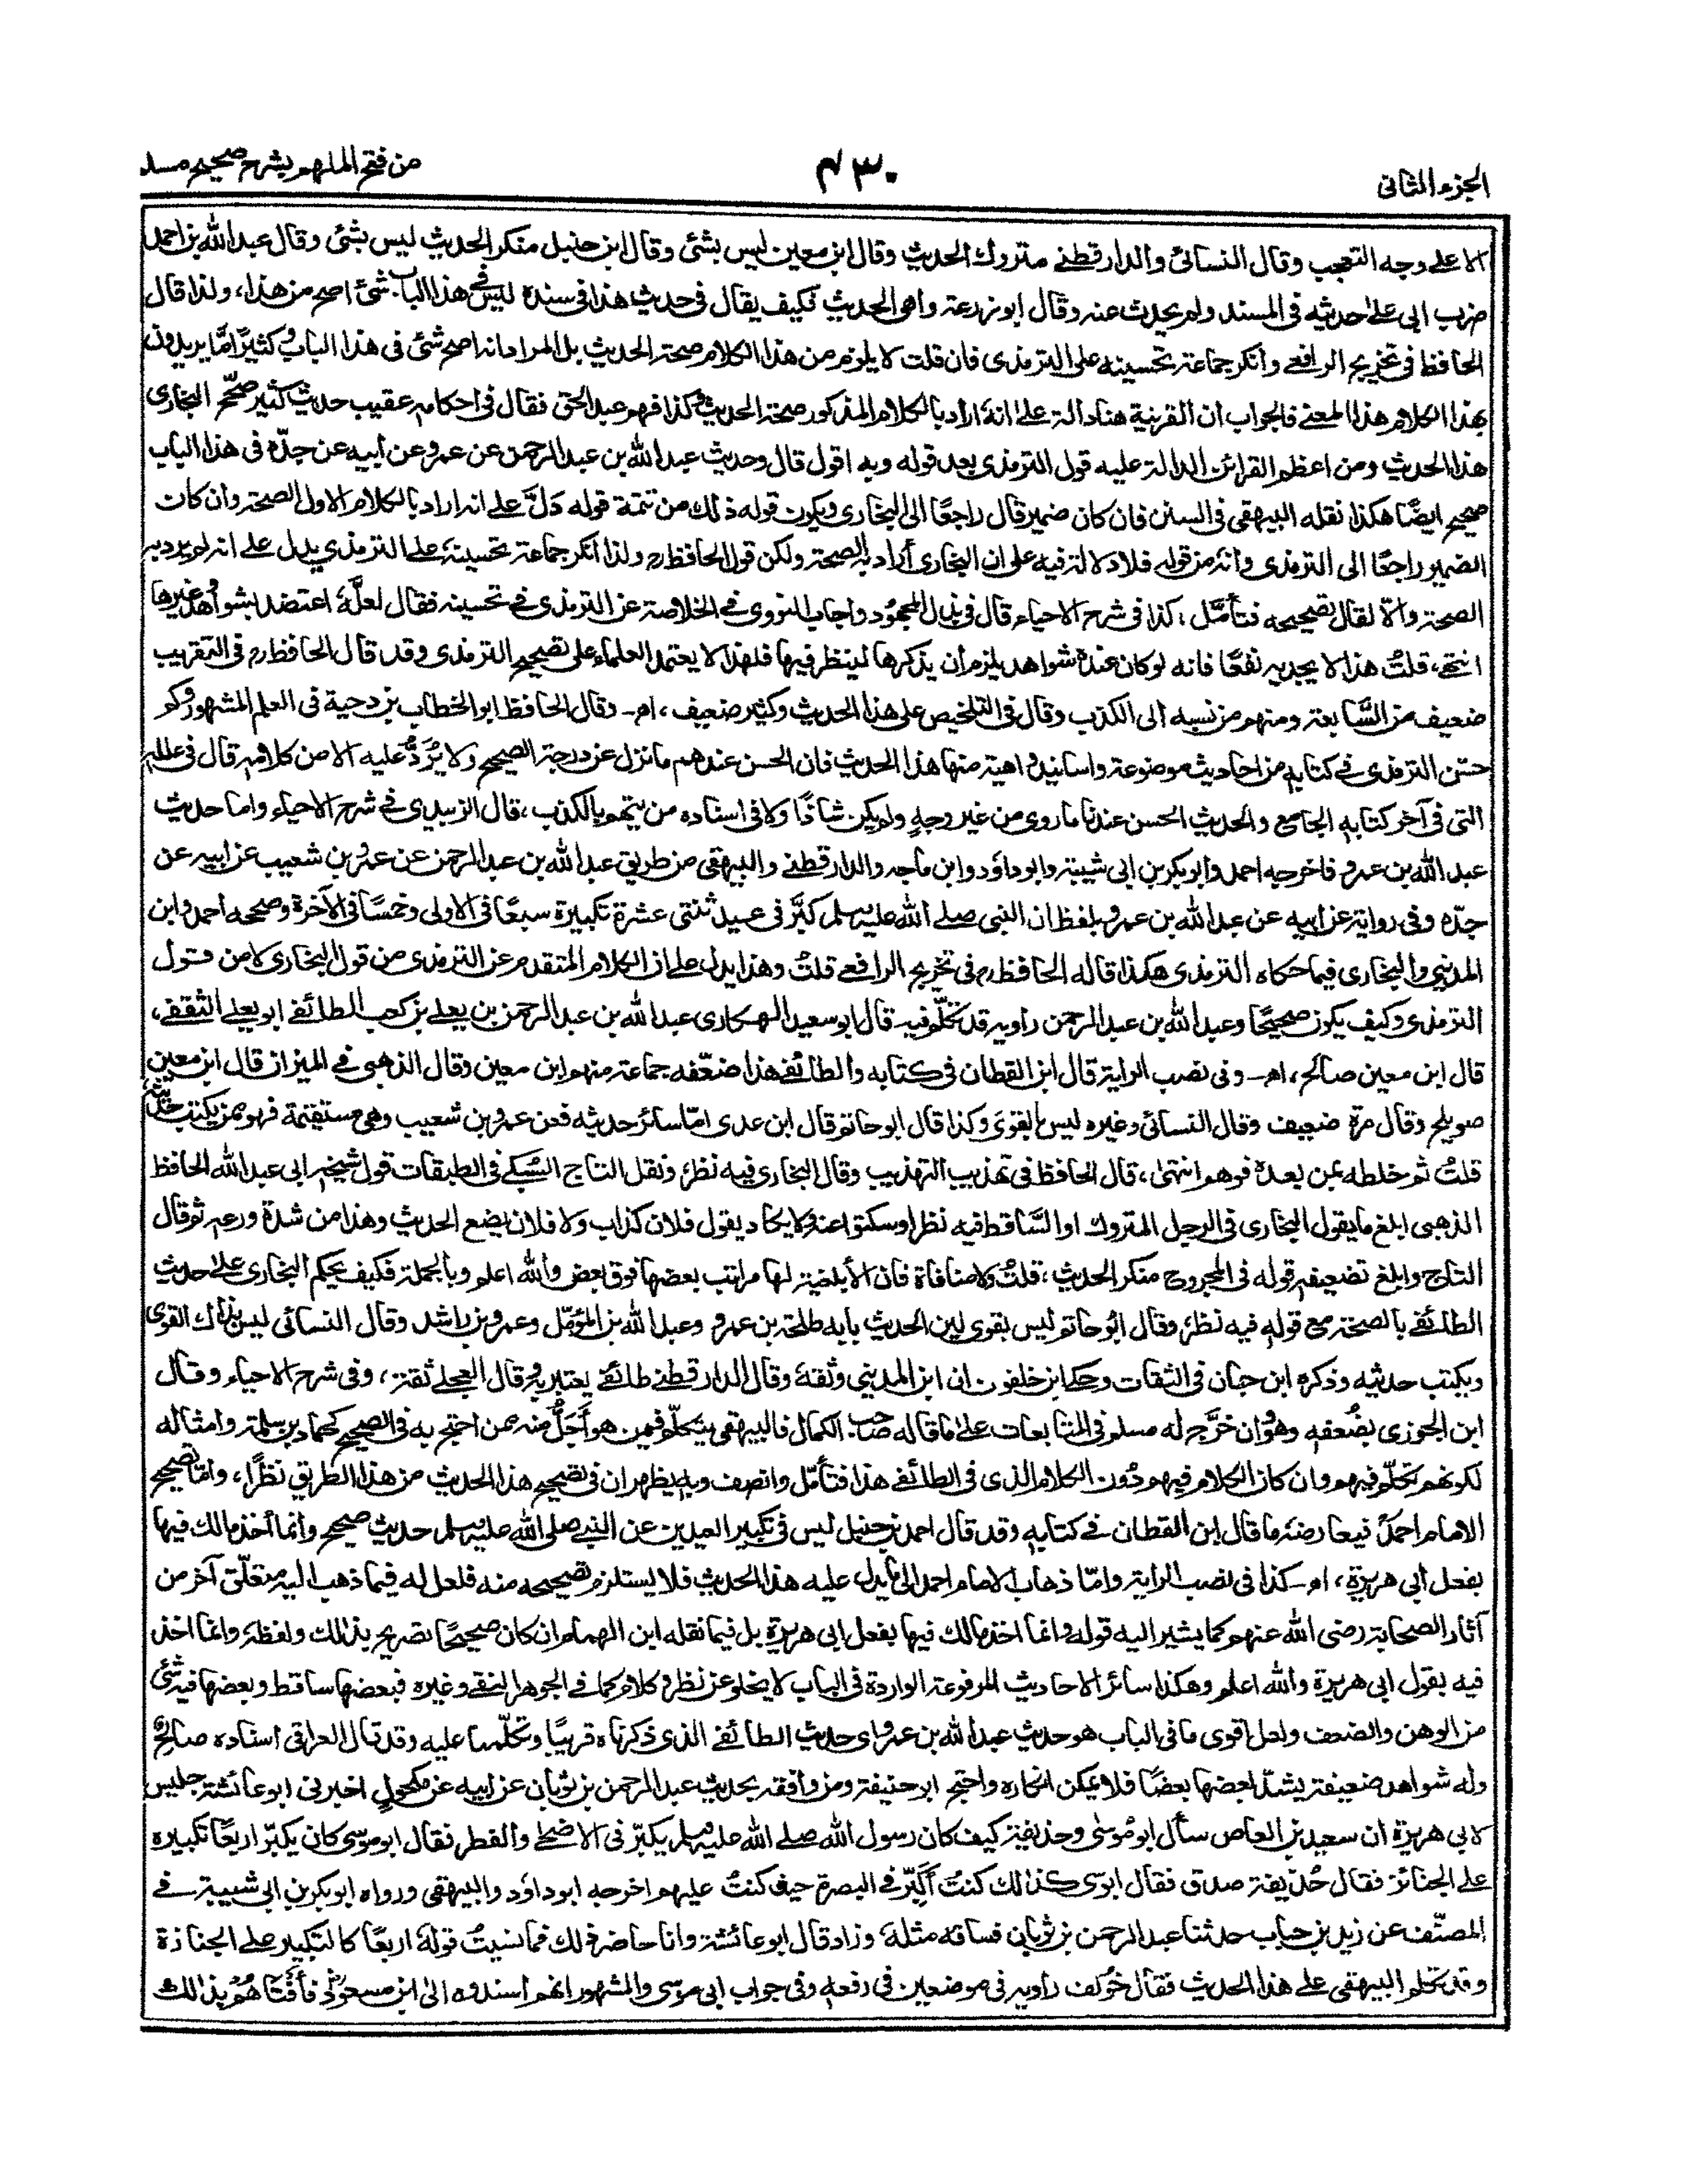 الجزء الثانى
٤٣٠
من فتح الملهم بشرح صحيح مسلم
الا على وجه التعجب وقال النسائى والدارقطنى متروك الحديث وقال ابن معين ليس بشئ وقال ابن حنبل منكر الحديث ليس بشئ وقال عبد الله بن احمد
ضرب ابى على حديثه فى المسند ولم يحدث عنه وقال ابو زرعة واهى الحديث فكيف يقال فى حديث هذا فى سنده ليس فى هذا الباب شئ اصح من هذا، ولذا قال
الحافظ فى تخريج الرافعى وانكر جماعة تحسينه على الترمذى فان قلت لا يلزم من هذا الكلام صحة الحديث بل المراد انه اصح شئ فى هذا الباب وكثيرًا ما يريدون
بهذا الكلام هذا المعنى فالجواب ان القرينة هنا دالة على انه اراد بالكلام المذكور صحة الحديث وكذا فهم عبد الحق فقال فى احكامه عقيب حديث كثير صحّح البخارى
هذا الحديث ومن اعظم القرائن الدالة عليه قول الترمذى بعد قوله وبه اقول قال وحديث عبد الله بن عبد الرحمن عن عمرو عن ابيه عن جدّه فى هذا الباب
صحيح ايضًا هكذا نقله البيهقى فى السنن فان كان ضمير قال راجعًا الى البخارى ويكون قوله ذلك من تتمة قوله دَلَّ على انه اراد بالكلام الاول الصحة وان كان
الضمير راجعًا الى الترمذى وانه من قوله فلا دلالة فيه على ان البخارى أراد به الصحة ولكن قول الحافظ رح ولذا انكر جماعة تحسينه على الترمذى يدل على انه لم يرد به
الصحة والّا لقال تصحيحه فتأمّل، كذا فى شرح الاحياء قال فى بذل المجهُود واجاب النووى فى الخلاصة عن الترمذى فى تحسينه فقال لعلّه اعتضد بشواهد وغيرها
انتهى، قلتُ هذا لا يجديه نفعًا فانه لو كان عنده شواهد يلزم أن يذكرها لينظر فيها فلهذا لا يعتمد العلماء على تصحيح الترمذى وقد قال الحافظ رح فى التقريب
ضعيف من السَّابعة ومنهم من نسبه الى الكذب وقال فى التلخيص على هذا الحديث وكثير ضعيف، اه‍- وقال الحافظ ابو الخطاب بن دحية فى العلم المشهور وكم
حسّن الترمذى فى كتابه من احاديث موضوعة واسانيد واهية منها هذا الحديث فان الحسن عندهم ما نزل عن درجة الصحيح ولا يُرَدُّ عليه الا من كلامه قال فى علله
التى فى آخر كتابه الجامع والحديث الحسن عندنا ما روى من غير وجهٍ ولم يكن شاذًا ولا فى اسناده من يتهم بالكذب، قال الزبيدى فى شرح الاحياء واما حديث
عبد الله بن عمرو فاخرجه احمد وابو بكر بن ابى شيبة وابو داؤد وابن ماجه والدارقطنى والبيهقى من طريق عبد الله بن عبد الرحمن عن عمرو بن شعيب عن ابيه عن
جدّه وفى رواية عن ابيه عن عبد الله بن عمرو بلفظ ان النبى صلى الله عليه وسلم كبَّر فى عيد ثنتى عشرة تكبيرة سبعًا فى الاولى وخمسًا فى الآخرة وصححه احمد وابن
المدينى والبخارى فيما حكاه الترمذى هكذا قاله الحافظ رح فى تخريج الرافعى قلتُ وهذا يدل على ان الكلام المتقدم عن الترمذى من قول البخارى لا من قول
الترمذى وكيف يكون صحيحًا وعبد الله بن عبد الرحمن راويه قد تُكلّم فيه قال ابو سعيد الهكارى عبد الله بن عبد الرحمن بن يعلى بن كعب الطائفى ابو يعلى الثقفى،
قال ابن معين صالح، اه‍- وفى نصب الراية قال ابن القطان فى كتابه والطائفى هذا ضعّفه جماعة منهم ابن معين وقال الذهبى فى الميزان قال ابن معين
صويلح وقال مرة ضعيف وقال النسائى وغيره ليس بالقوى وكذا قال ابو حاتم وقال ابن عدى امّا سائر حديثه فعن عمرو بن شعيب وهى مستقيمة فهو ممن يكتب حديثه
قلتُ ثم خلطه بمن بعده فوهم انتهٰى، قال الحافظ فى تهذيب التهذيب وقال البخارى فيه نظر، ونقل التاج السُّبكى فى الطبقات قول شيخه ابى عبد الله الحافظ
الذهبى ابلغ ما يقول البخارى فى الرجل المتروك او السَّاقط فيه نظر او سكتوا عنه ولا يكاد يقول فلان كذاب ولا فلان يضع الحديث وهذا من شدة ورعه ثم قال
التاج وابلغ تضعيفه قوله فى المجروح منكر الحديث، قلتُ ولا منافاة فان الأبلغية لها مراتب بعضها فوق بعض والله اعلم وبالجملة فكيف يحكم البخارى على حديث
الطائفى بالصحة مع قوله فيه نظر، وقال ابُو حاتم ليس بقوى لين الحديث بابه طلحة بن عمرو وعبد الله بن المؤمّل وعمر بن راشد وقال النسائى ليس بذاك القوى
ويكتب حديثه وذكره ابن حبان فى الثقات وحكى ابن خلفون ان ابن المدينى وثقه وقال الدارقطنى طائفى يعتبر به وقال العجلى ثقة، وفى شرح الاحياء وقال
ابن الجوزى بضُعفه وهُو وان خرَّج له مسلم فى المتابعات على ما قاله صاحب الكمال فالبيهقى يتكلّم فيمن هو أَجَلُّ منه ممن احتج به فى الصحيح كحماد بن سلمة وامثاله
لكونهم تكلّم فيهم وان كان الكلام فيهم دُون الكلام الذى فى الطائفى هذا فتأمّل وانصف وبه يظهر ان فى تصحيح هذا الحديث من هذا الطريق نظرًا، وامّا تصحيح
الامام احمدؒ فيعارضه ما قال ابن القطان فى كتابه وقد قال احمد بن حنبل ليس فى تكبير العيدين عن النبى صلى الله عليه وسلم حديث صحيح وانما أخذ مالك فيها
بفعل أبى هريرة، اه‍- كذا فى نصب الراية وامّا ذهاب الامام احمد الى ما يدل عليه هذا الحديث فلا يستلزم تصحيحه منه فلعل له فيما ذهب اليه متعلّق آخر من
آثار الصحابة رضى الله عنهم كما يشير اليه قوله وانما اخذ مالك فيها بفعل ابى هريرة بل فيما نقله ابن الهمام ان كان صحيحًا تصريح بذلك ولفظه، وانما اخذ
فيه بقول ابى هريرة والله اعلم وهكذا سائر الاحاديث المرفوعة الواردة فى الباب لا يخلو عن نظر وكلام كما فى الجوهر النقى وغيره فبعضها ساقط وبعضها فيه شئ
من الوهن والضعف ولعل اقوى ما فى الباب هو حديث عبد الله بن عمرو اى حديث الطائفى الذى ذكرناه قريبًا وتكلّمنا عليه وقد قال العراقى اسناده صالحٌ
وله شواهد ضعيفة يشدّ بعضها بعضًا فلا يمكن انكاره واحتج ابو حنيفة ومن وافقه بحديث عبد الرحمن بن ثوبان عن ابيه عن مكحولٍ اخبرنى ابو عائشة جليس
لابى هريرة ان سعيد بن العاص سأل ابو مُوسٰى وحذيفة كيف كان رسول الله صلى الله عليه وسلم يكبّر فى الاضحٰى والفطر فقال ابو موسى كان يكبّر اربعًا تكبيره
على الجنائز فقال حُذيفة صدق فقال ابو موسى كذلك كنتُ أُكَبِّر فى البصرة حيث كنتُ عليهم اخرجه ابو داوَد والبيهقى ورواه ابو بكر بن ابى شيبة فى
المصنّف عن زيد بن حباب حدثنا عبد الرحمن بن ثوبان فساقه مثله، وزاد قال ابو عائشة وانا حاضر ذلك فما نسيتُ قوله اربعًا كالتكبير على الجنازة
وقد تكلم البيهقى على هذا الحديث فقال خُولف راويه فى موضعين فى رفعه وفى جواب ابى موسى والمشهور انهم اسندوه الى ابن مسعودؓ فأَفتَاهُمْ بذلك